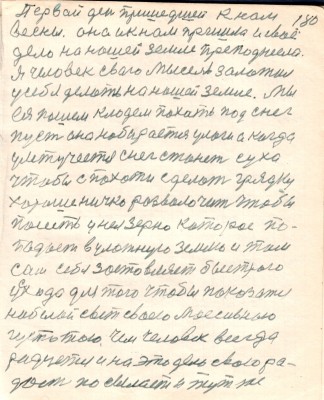 Первой ден пришедшей к нам 180
весны. она и к нам пришла и своё
дело на нашей земле преподнесла.
А человек сваго мысель заложил
у себя делать на нашей земле. Мы
её пошли кладем пахать под снег
пуст она набирается улаги а когда
улетучется снег станет суха
чтобы с пахати сделат грядку
хорошеничко разволочит чтобы
посеять у нея зерно которое по-
падает в улажную землю и там
сам себя заставляет быстрого
ухода для того чтобы показат
на белай свет своего массивнаю
густоту. Чем человек всегда
радуется и на это дело своего ра-
дость посылает и тут же